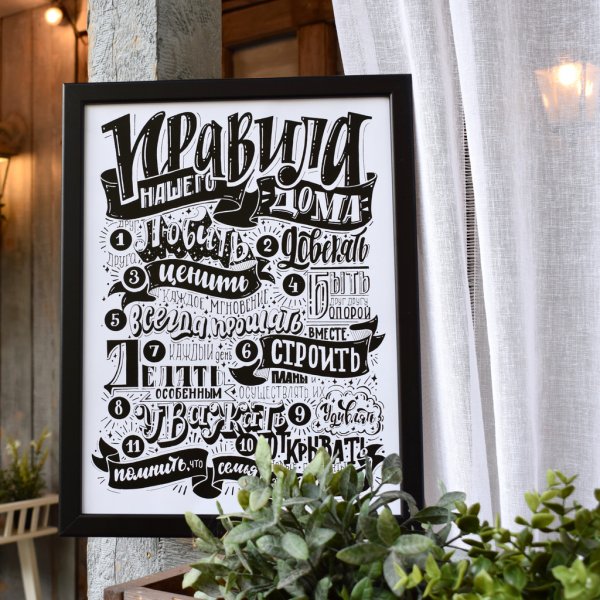 Правила
нашего дома
1 друг друга любить 2 доверять
3 ценить
каждое мгновение
4 быть друг другу опорой
5 всегда прощать
6 вместе строить планы и осуществлять их
7 каждый день делать особенным
8 уважать 9 удивлять
10 открывать
11 помнить, что семья